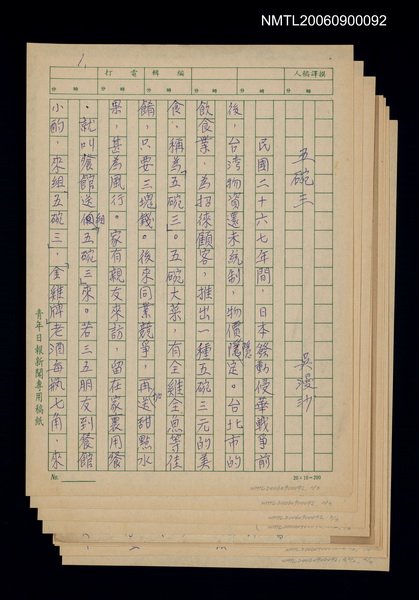 NMTL20060900092
人稿譯撰
輯編
電打
分 時
分 時
分 時
分 時
1.
五碗三
吳漫沙
民國二十六七年間，日本發動侵華戰爭前
後，台湾物資還未統制，物價穩定。台北市的
飲食業，為招徠顧客，推出一種五碗三元的美
食，稱為「五碗三」。五碗大菜，有全雞全魚等佳
餚，只要三塊錢。後來同業競爭，再加送甜點水
果，甚為風行。家有親友來訪，留在家裏用餐
，就叫餐館送一組「五碗三」來。若三五朋友到餐館
小酌，來組「五碗三」，金雞牌老酒每瓶七角，來
青年日報新聞專用稿紙
No.
20×10=200
NMTL20060900092